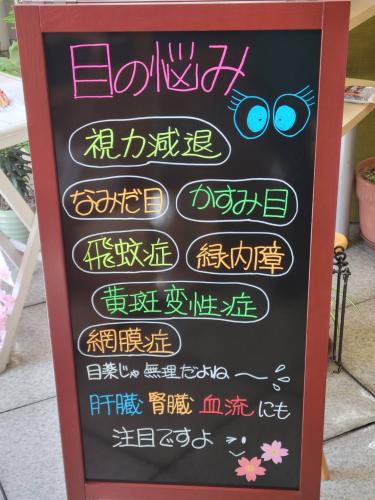 目の悩み
視力減退
なみだ目 かすみ目
飛蚊症 緑内障
黄斑変性症
網膜症
目薬じゃ無理だよね〜
肝臓 腎臓 血流にも
注目ですよ